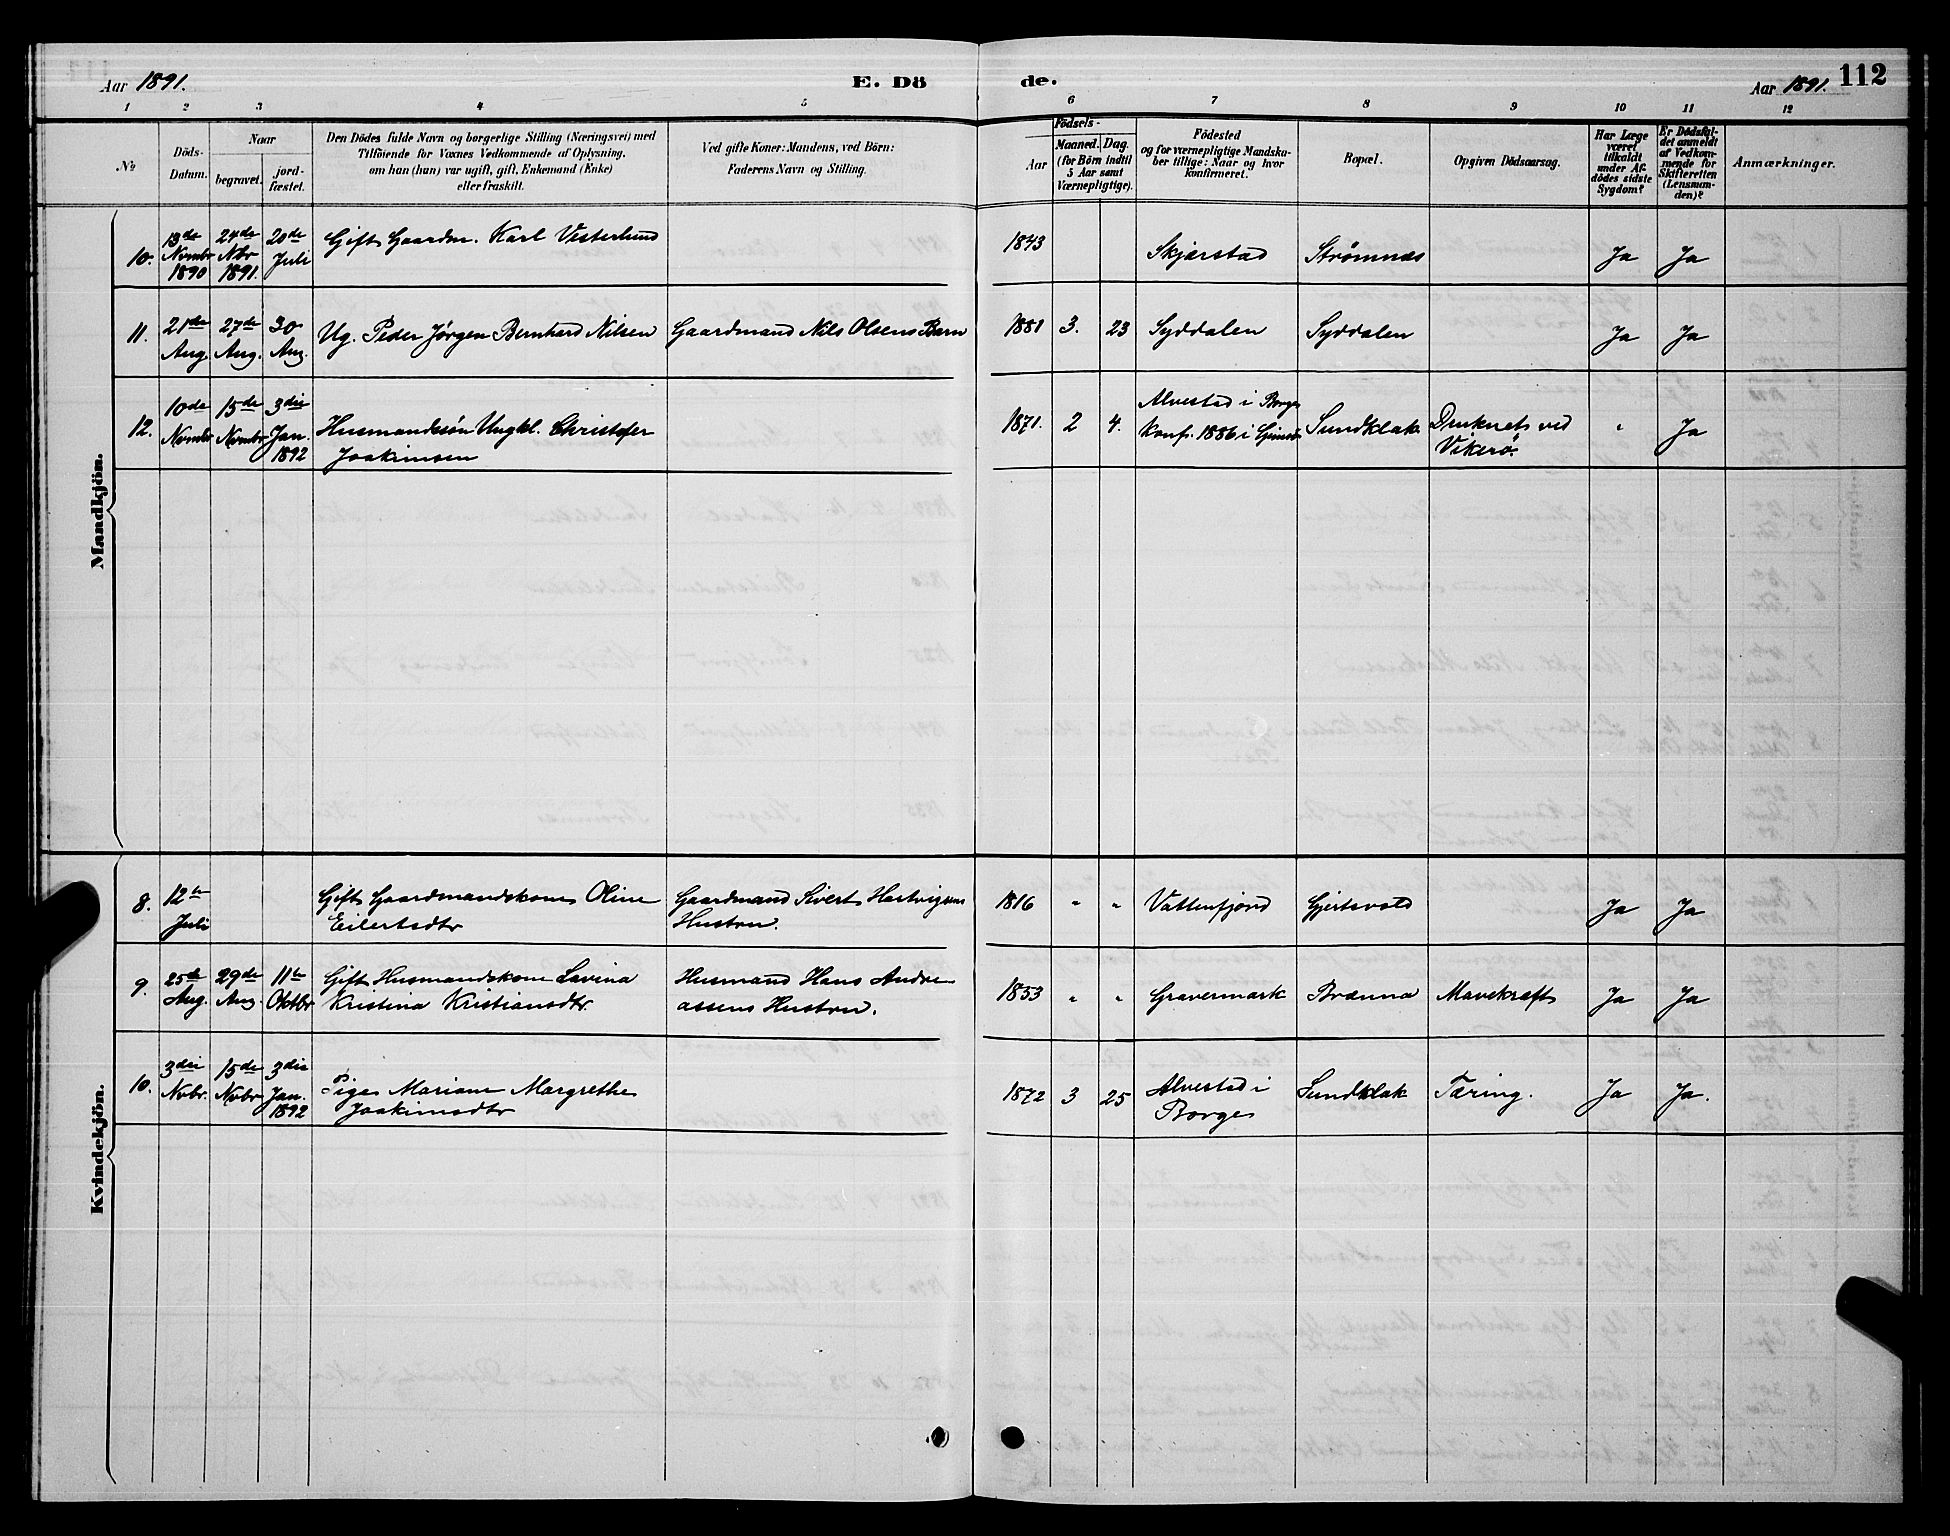 Aar 1891.
E. Dö
de.
Aar 1891.
112
1 2 3 4 5 6 7 8 9 10 11 12
No
Döds-
Datum.
Naar
begravet.
jord-
fæstet.
Den Dödes fulde Navn og borgerlige Stilling (Næringsvei) med
Tilföiende for Voxnes Vedkommende af Oplysning,
om han (hun) var ugift, gift, Enkemand (Enke)
eller fraskilt.
Ved gifte Koner: Mandens, ved Börn:
Faderens Navn og Stilling.
Födsels-
Aar
Maaned.
Dag.
(for Börn indtil
5 Aar samt
Værnepligtige).
Födested
og for værnepligtige Mandska-
ber tillige: Naar og hvor
konfirmeret.
Bopæl.
Opgiven Dödsaarsag.
Har Læge
været
tilkaldt
under Af-
dödes sidste
Sygdom?
Er Dödsfal-
det anmeldt
af Vedkom-
mende for
Skifteretten
(Lensman-
den)?
Anmærkninger.
Mandkjön.
10. 13de Novmbr 1890 24de Nbr 1891. 20de Juli Gift Gaardm. Karl Vesterlund 1843 Skjærstad Strømnæs Ja Ja
11. 21de Aug. 27de Aug. 30 Aug. Ug. Peder Jørgen Bernhard Nilsen Gaardmand Nils Olsens Barn 1881 3. 23 Syddalen Syddalen Ja Ja
12. 10de Novmbr 15de Novmbr 3die Jan. 1892 Husmandssön Ungkl. Christofer
Joakimsen 1871. 2 4. Alvestad i Borge
Konf. 1886 i Gimsø Sundklak Druknet ved
Vikerø. " Ja
Kvindekjön.
8. 12te Juli Gift Gaardmandskone Oline
Eilertsdtr Gaardmand Sivert Hartvigsens
Hustru. 1816 " " Vattenfjord Gjertsvold Ja Ja
9. 25de Aug. 29de Aug. 11te Oktbr Gift Husmandskone Lavina
Kristina Kristiansdtr. Husmand Hans Andre-
assens Hustru. 1853 " " Gravermark Brænna Mavekræft Ja Ja
10. 3die Nvbr. 15de Nvbr 3die Jan. 1892 Pige Mariane Margrethe
Joakimsdtr 1872 3 25 Alvestad i
Borge Sundklak Tæring. Ja Ja.